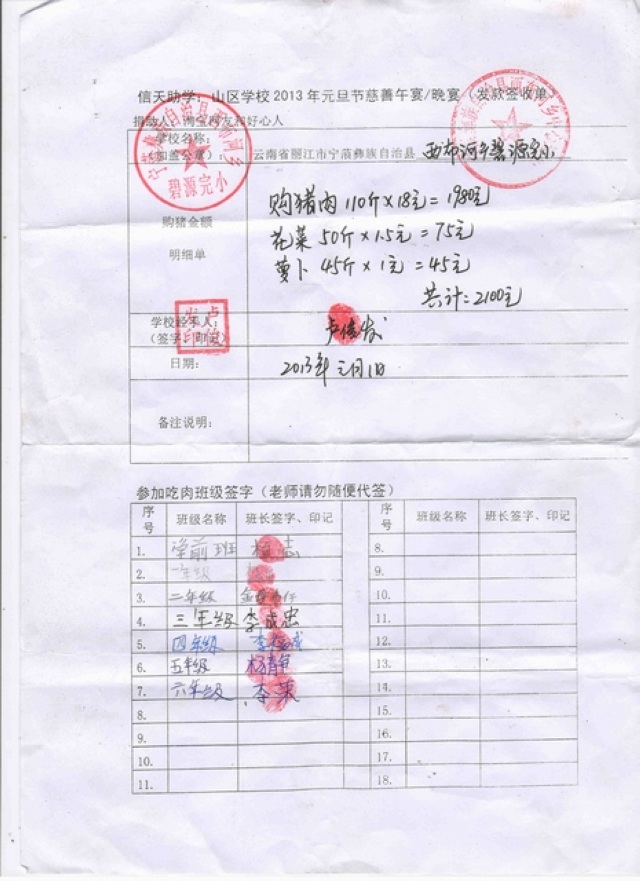 信天助学：山区学校 2013 年元旦节慈善午宴/晚宴（发款签收单）
捐助人：淘宝网友和好心人
学校名称：
（加盖公章）： 云南省丽江市宁蒗彝族自治县 西布河乡碧源完小
碧源完小
购猪金额
明细单
购猪肉 110斤×18元=1980元
花菜 50斤×1.5元=75元
萝卜 45斤×1元=45元
共计:2100元
学校经手人：
（签字、印记） 卢俊发
日期： 2013年元月1日
备注说明：
参加吃肉班级签字（老师请勿随便代签）
序号 班级名称 班长签字、印记 序号 班级名称 班长签字、印记
1. 学前班 8.
2. 一年级 9.
3. 二年级 10.
4. 三年级 李成忠 11.
5. 四年级 12.
6. 五年级 13.
7. 六年级 李 14.
8. 15.
9. 16.
10. 17.
11. 18.